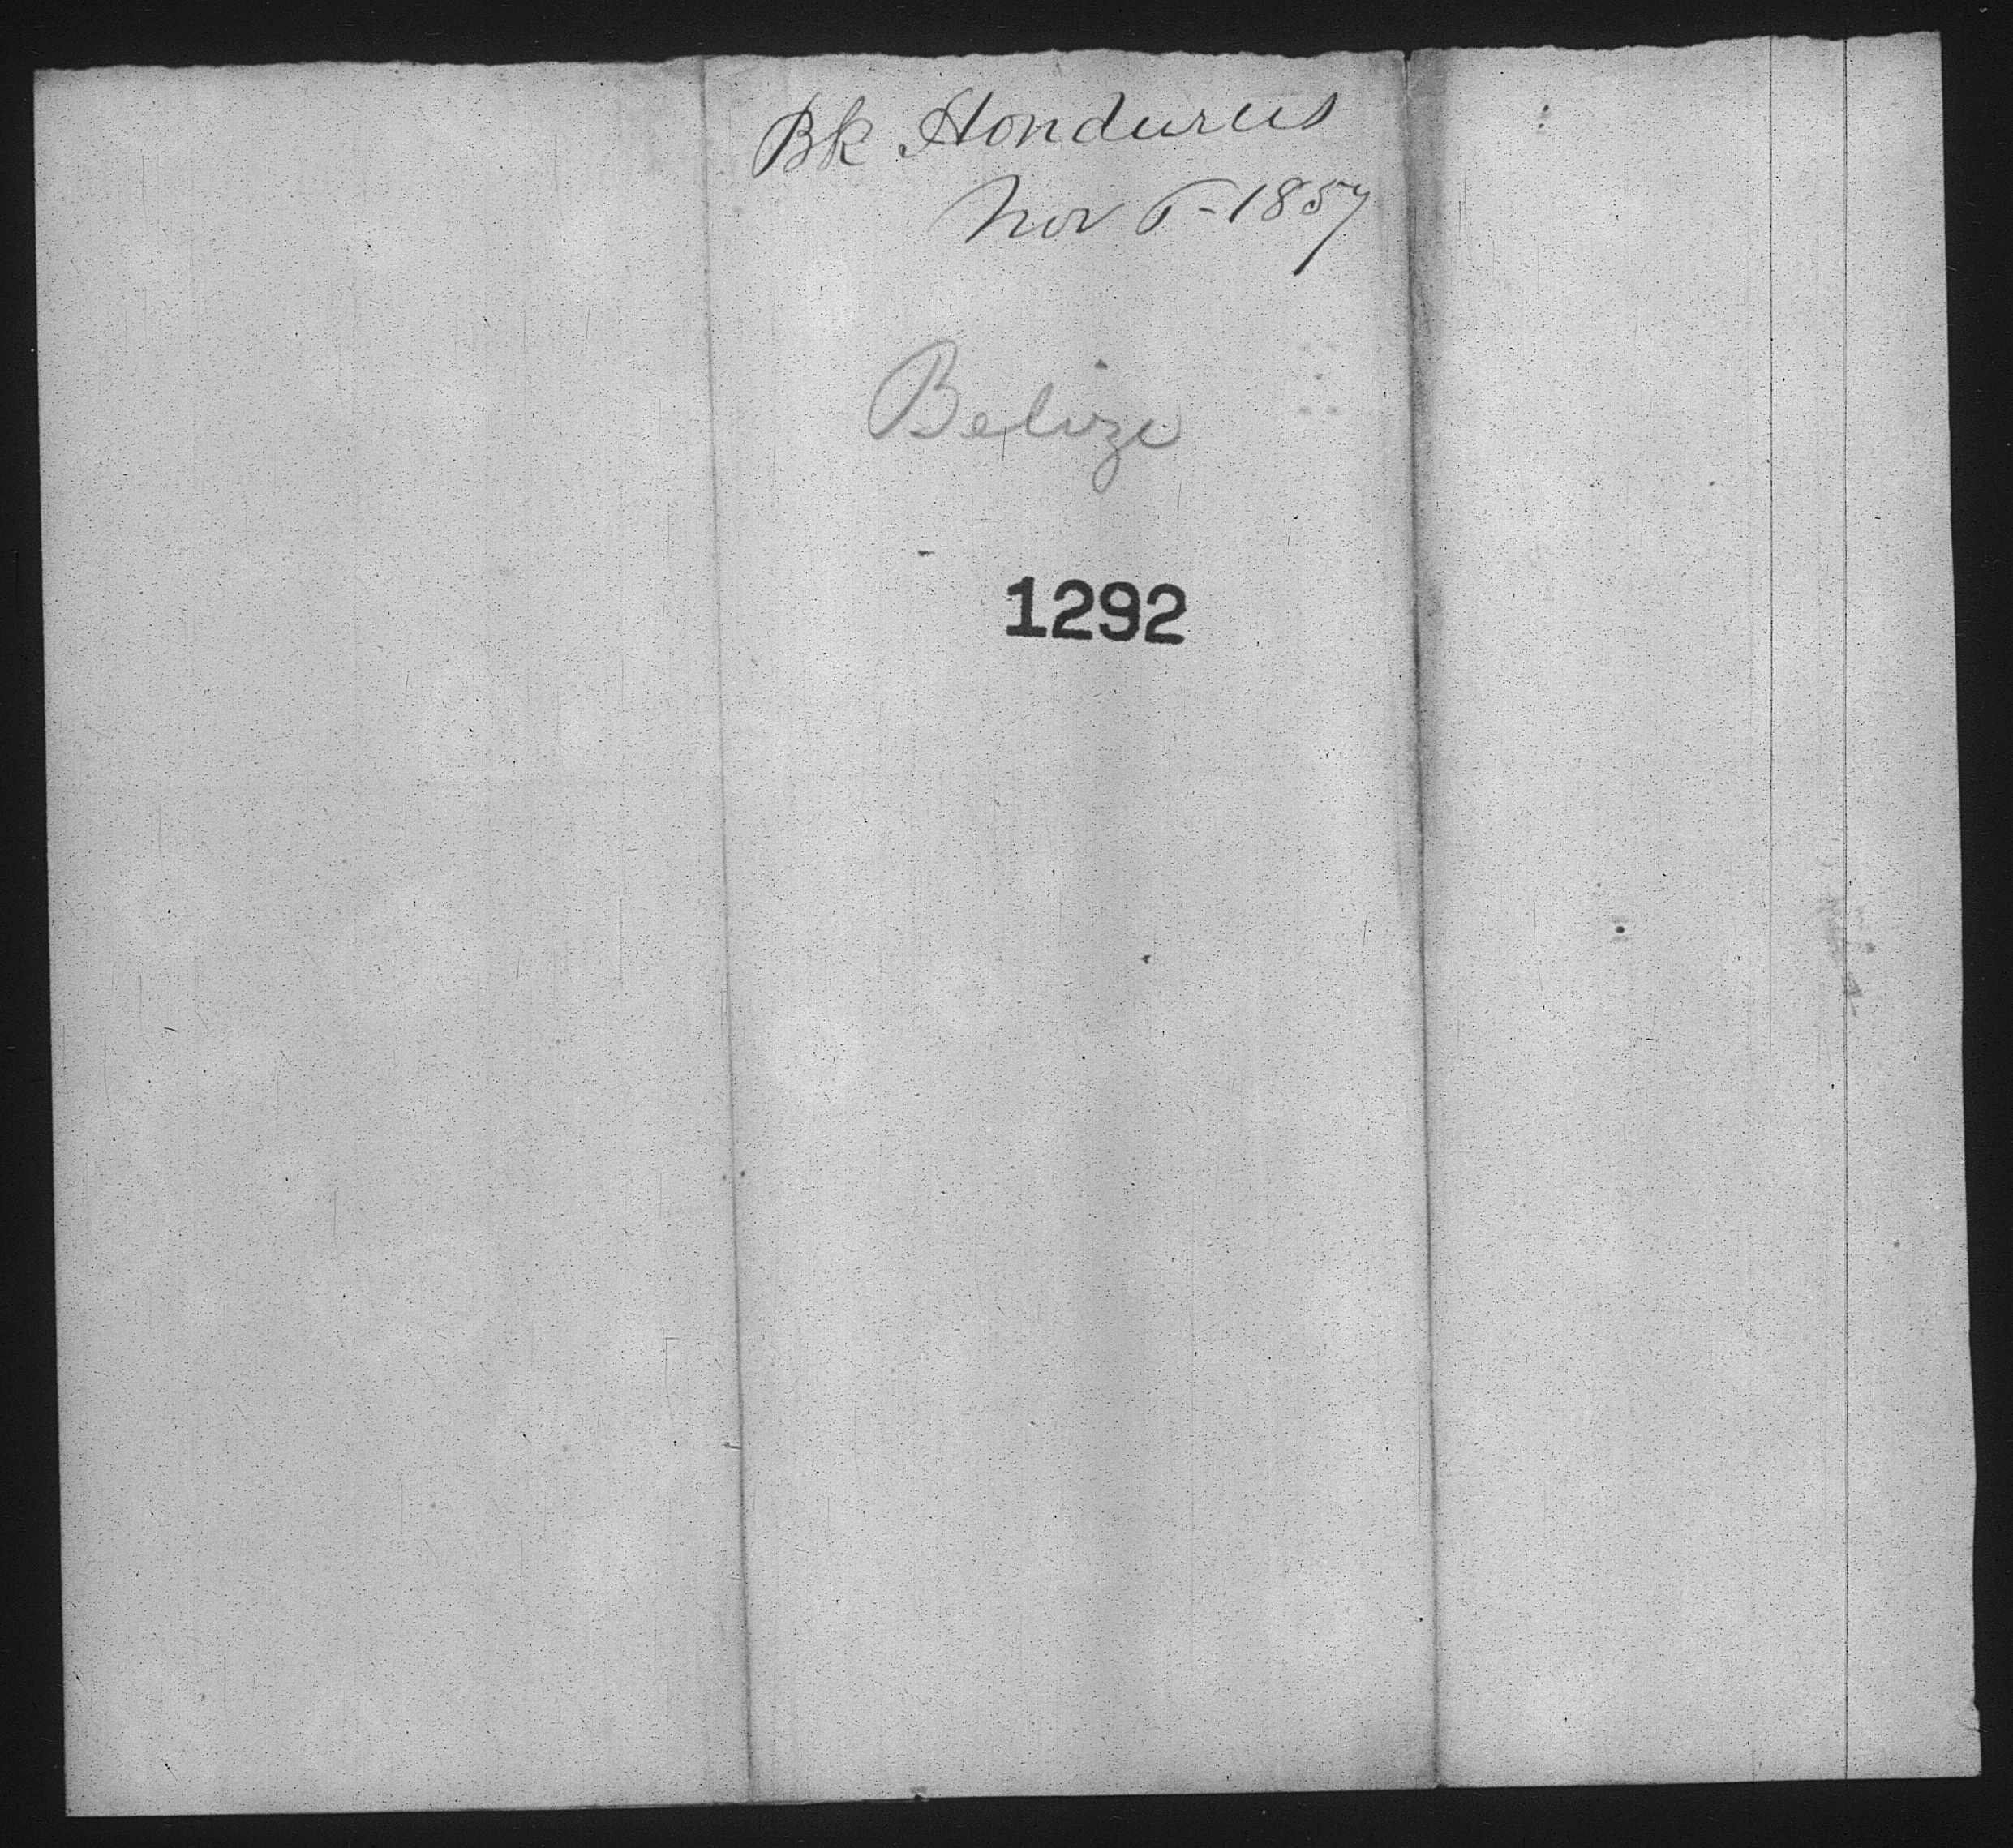 Bk Hondurus
Nov 6-1857
Belize
1292